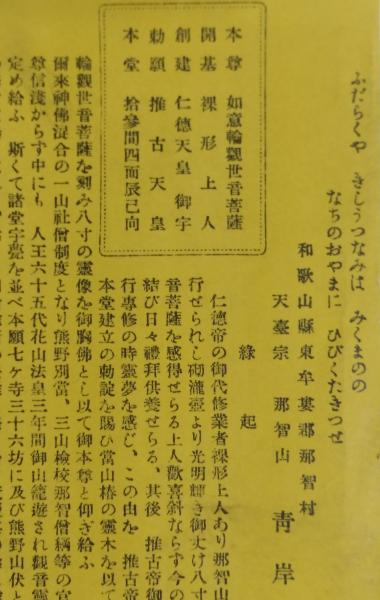 ふだらくや きしうつなみは みくまのの
なちのおやまに ひびくたきつせ
和歌山縣東牟婁郡那智村
天臺宗 那智山 靑岸
本尊 如意輪觀世音菩薩
開基 裸形上人
創建 仁德天皇御宇
勅願 推古天皇
本堂 拾參間四面辰巳向
緣起
仁德帝の御代修業者裸形上人あり那智山
行せられし砌瀧壺より光明輝き御丈け八寸
音菩薩を感得せらる上人歡喜斜ならず今の
結び日々禮拜供養せらる、其後 推古帝御
行專修の時靈夢を感じ、この由を 推古帝
本堂建立の勅詔を賜ひ當山椿の靈木を以て
輪觀世音菩薩を刻み八寸の靈像を御胸佛とし以て御本尊と仰ぎ給ふ
爾來神佛混合の一山社僧制度となり熊野別當、三山檢校那智僧綱等の官
尊信淺からず中にも 人王六十五代花山法皇三年間御山籠遊され觀音靈
定め給ふ 斯くて諸堂宇甍を並べ本願七ヶ寺三十六坊に及び熊野山伏と